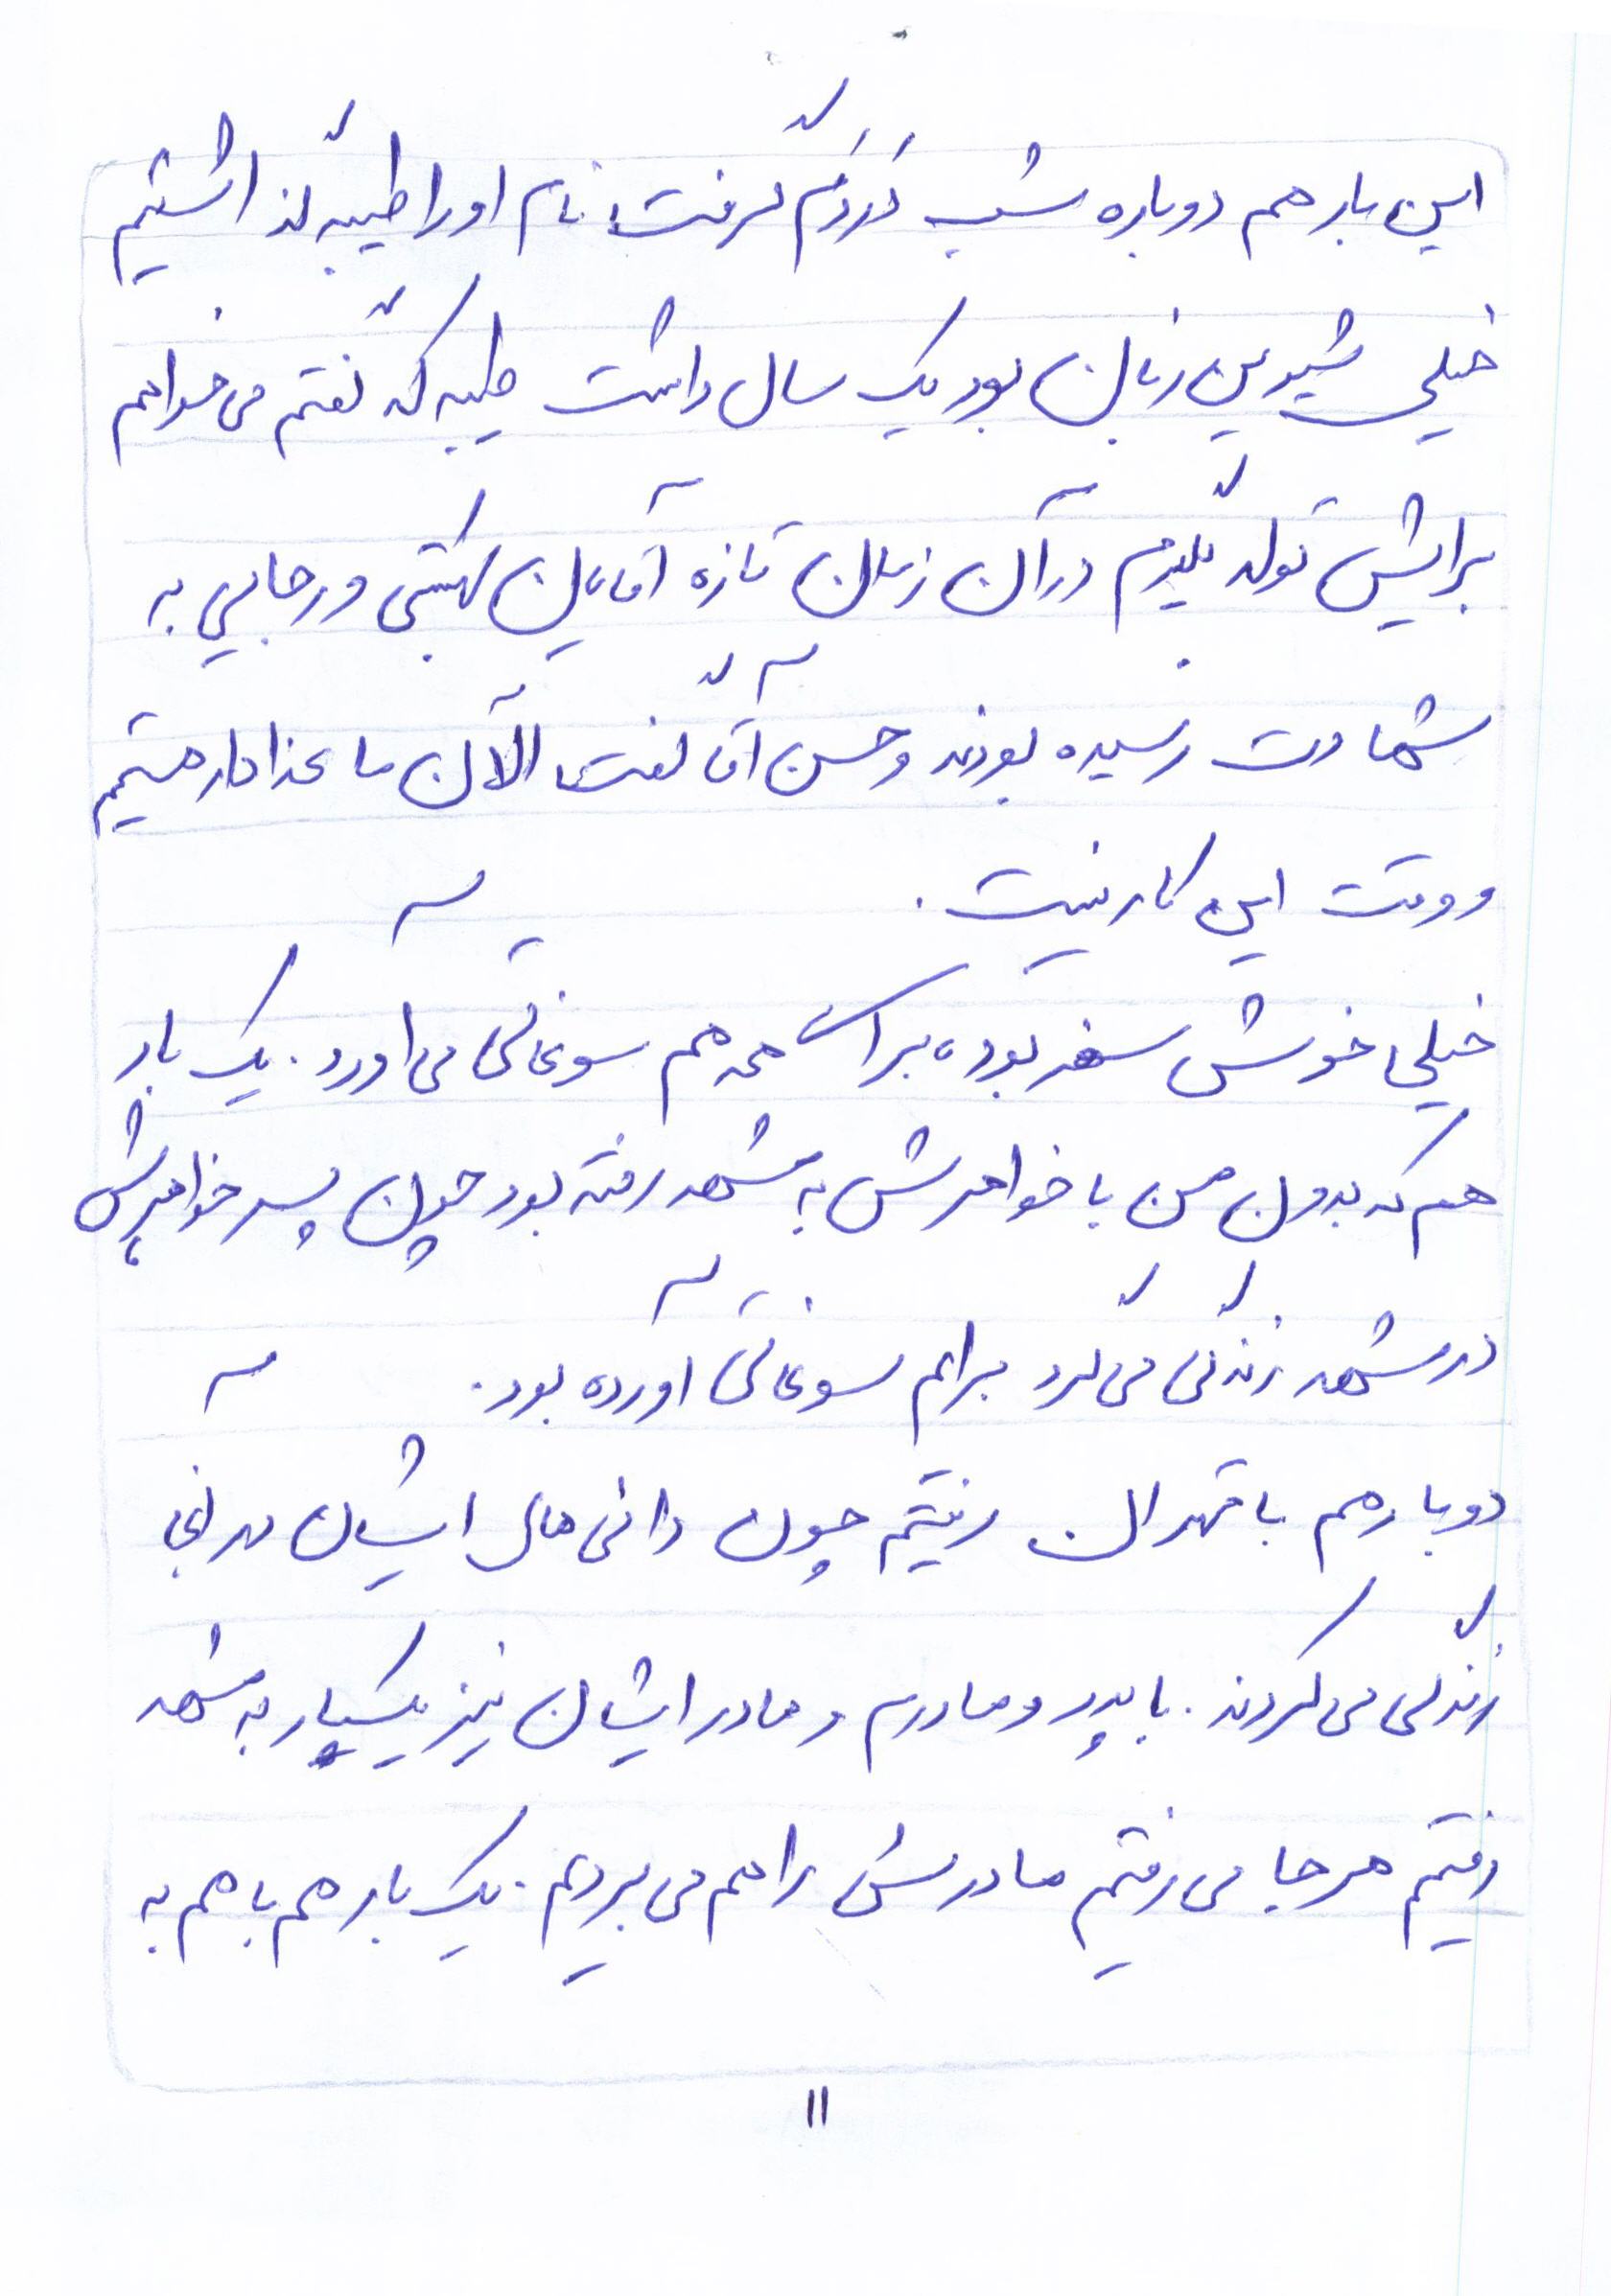 این بار هم دوباره شب دَردَم گرفت، نام او را طیبه گذاشتیم
خیلی شیرین زبان بود یک سال داشت طیبه که گفتم می‌خواهم
برایش تولد بگیرم در آن زمان تازه آقایان بهشتی و رجایی به
شهادت رسیده بودند و حسن آقا گفت الآن ما عذادار هستیم
و وقت این کار نیست.
خیلی خوش سفر بود، برای همه هم سوغاتی می‌آورد. یک بار
هم که بدون من با خواهرش به مشهد رفته بود چون پسر خواهرش
در مشهد زندگی می‌کرد برایم سوغاتی آورده بود.
دوبار هم با تهران رفتیم چون دائی‌های ایشان در آنجا
زندگی می‌کردند. با پدر و مادرم و مادر ایشان نیز یکبار به مشهد
رفتیم هر جا می‌رفتیم مادرش را هم می‌بردیم. یک بار هم با هم به
۱۱